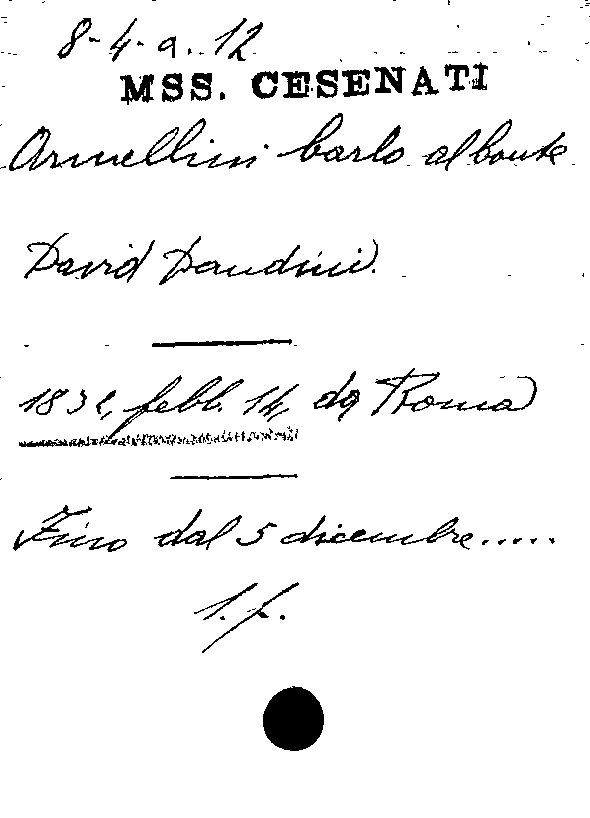 8-4-a. 12
MSS. CESENATI
Armellini Carlo al Conte
David Dandini.
1832, febb. 14, da Roma
Fino dal 5 dicembre.....
1. f.